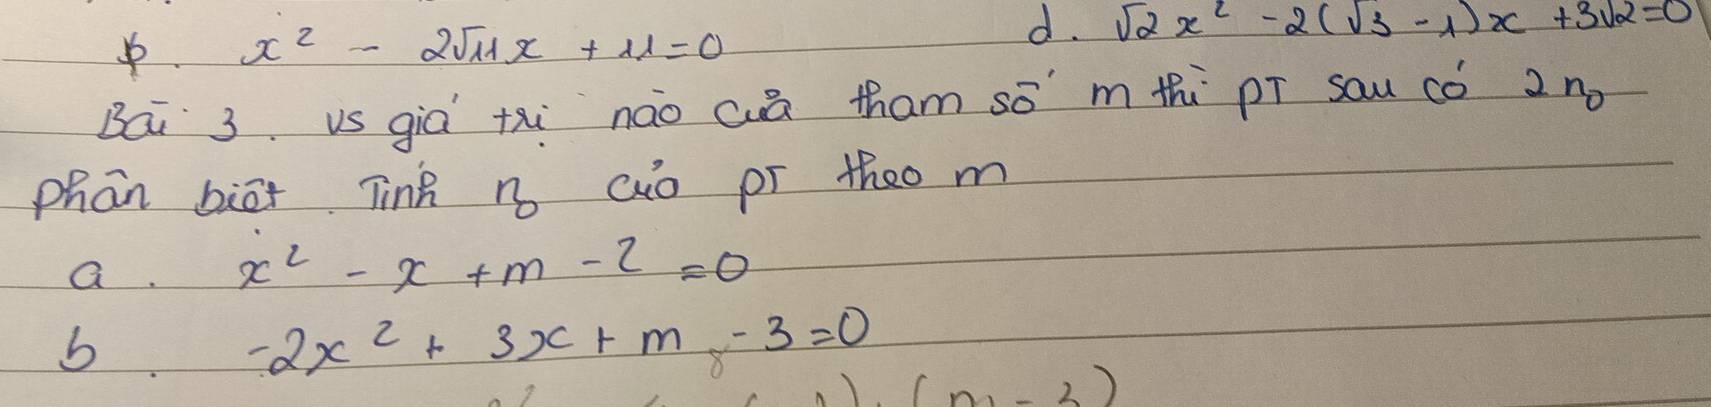 b. x² - 2√11x + 11 = 0 d. √2x² - 2(√3 - 1)x + 3√2 = 0
Bài 3. vs giá trị nào của tham số m thì PT sau có 2 n₀
phân biệt. Tính n₀ của PT theo m
a. x² - x + m - 2 = 0
b. -2x² + 3x + m - 3 = 0
(m - 3)